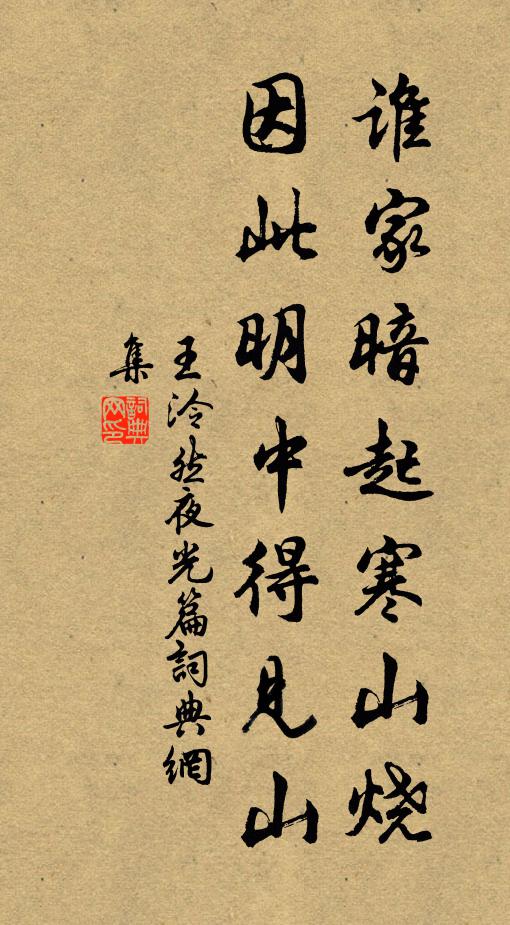 谁家暗起寒山烧
因此明中得见山
王泠然夜光篇詞典網
集
詞典
网印